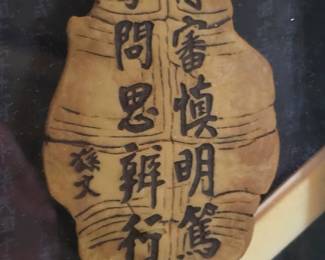 審慎明篤
問思辨行
孫文